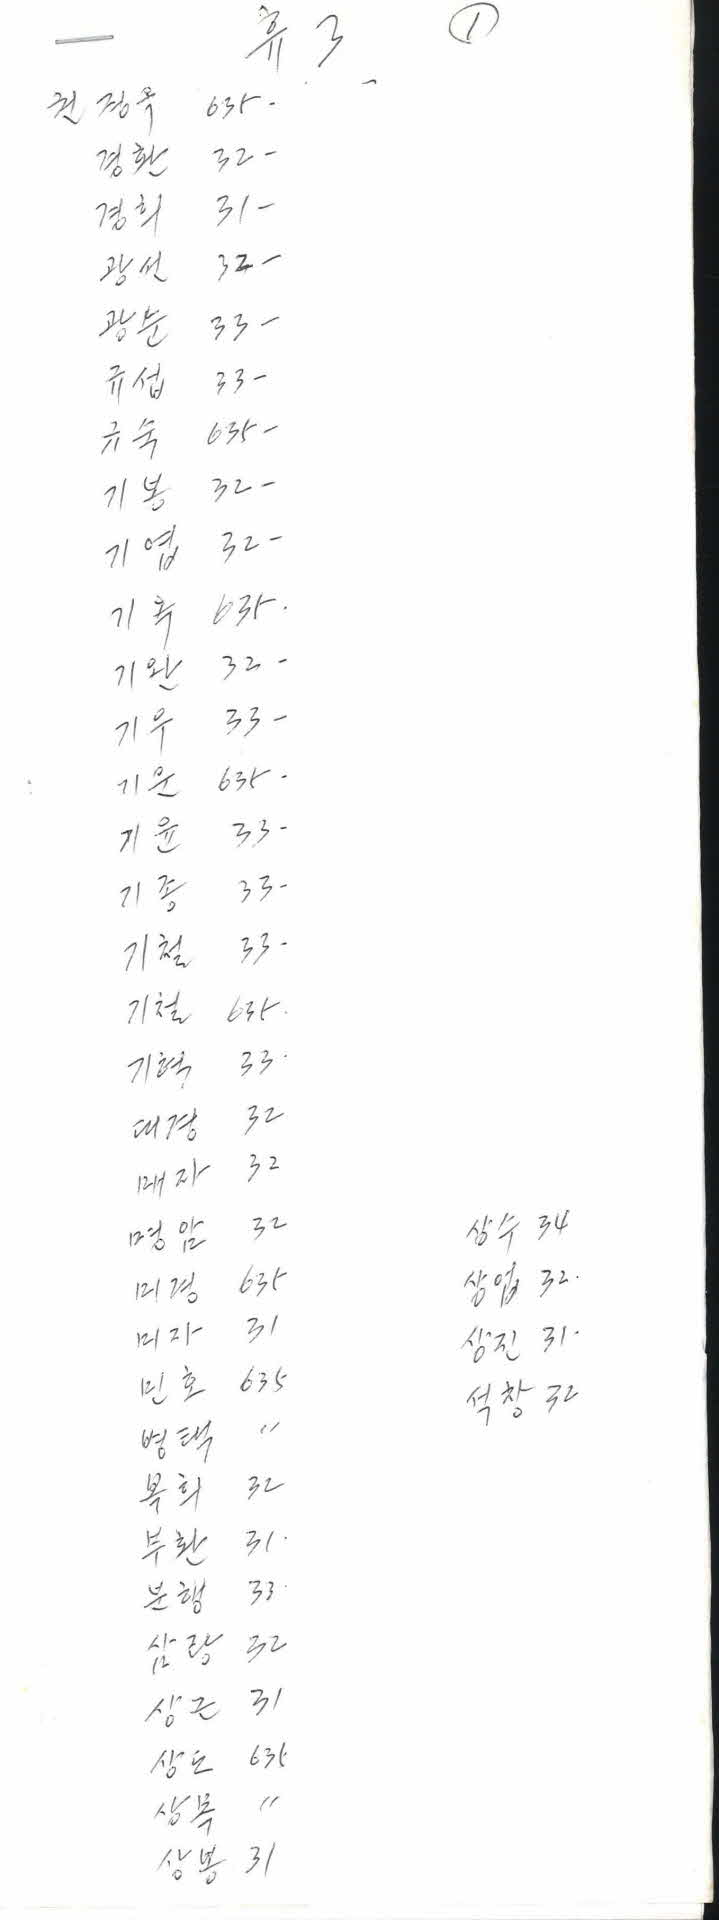 휴 3 ①
권 정옥 635-
경환 32-
경희 31-
광선 32-
광순 33-
규섭 33-
규숙 635-
기봉 32-
기엽 32-
기옥 635-
기완 32-
기우 33-
기운 635-
기윤 33-
기종 33-
기철 33-
기철 635-
기혁 33-
대경 32
매자 32
명암 32
미경 635
미자 31
민호 635
병택 〃
복희 32
부환 31-
분행 33-
삼랑 32
상근 31
상도 635
상목 〃
상봉 31
상수 34
상업 32-
상진 31-
석창 32